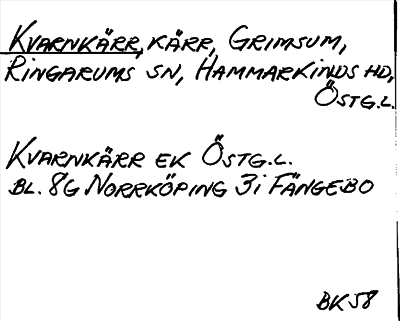 KVARNKÄRR, KÄRR, GRIMSUM,
RINGARUMS SN, HAMMARKINDS HD,
ÖSTG.L.
KVARNKÄRR EK ÖSTG.L.
BL. 8G NORRKÖPING 3i FÄNGEBO
BK58